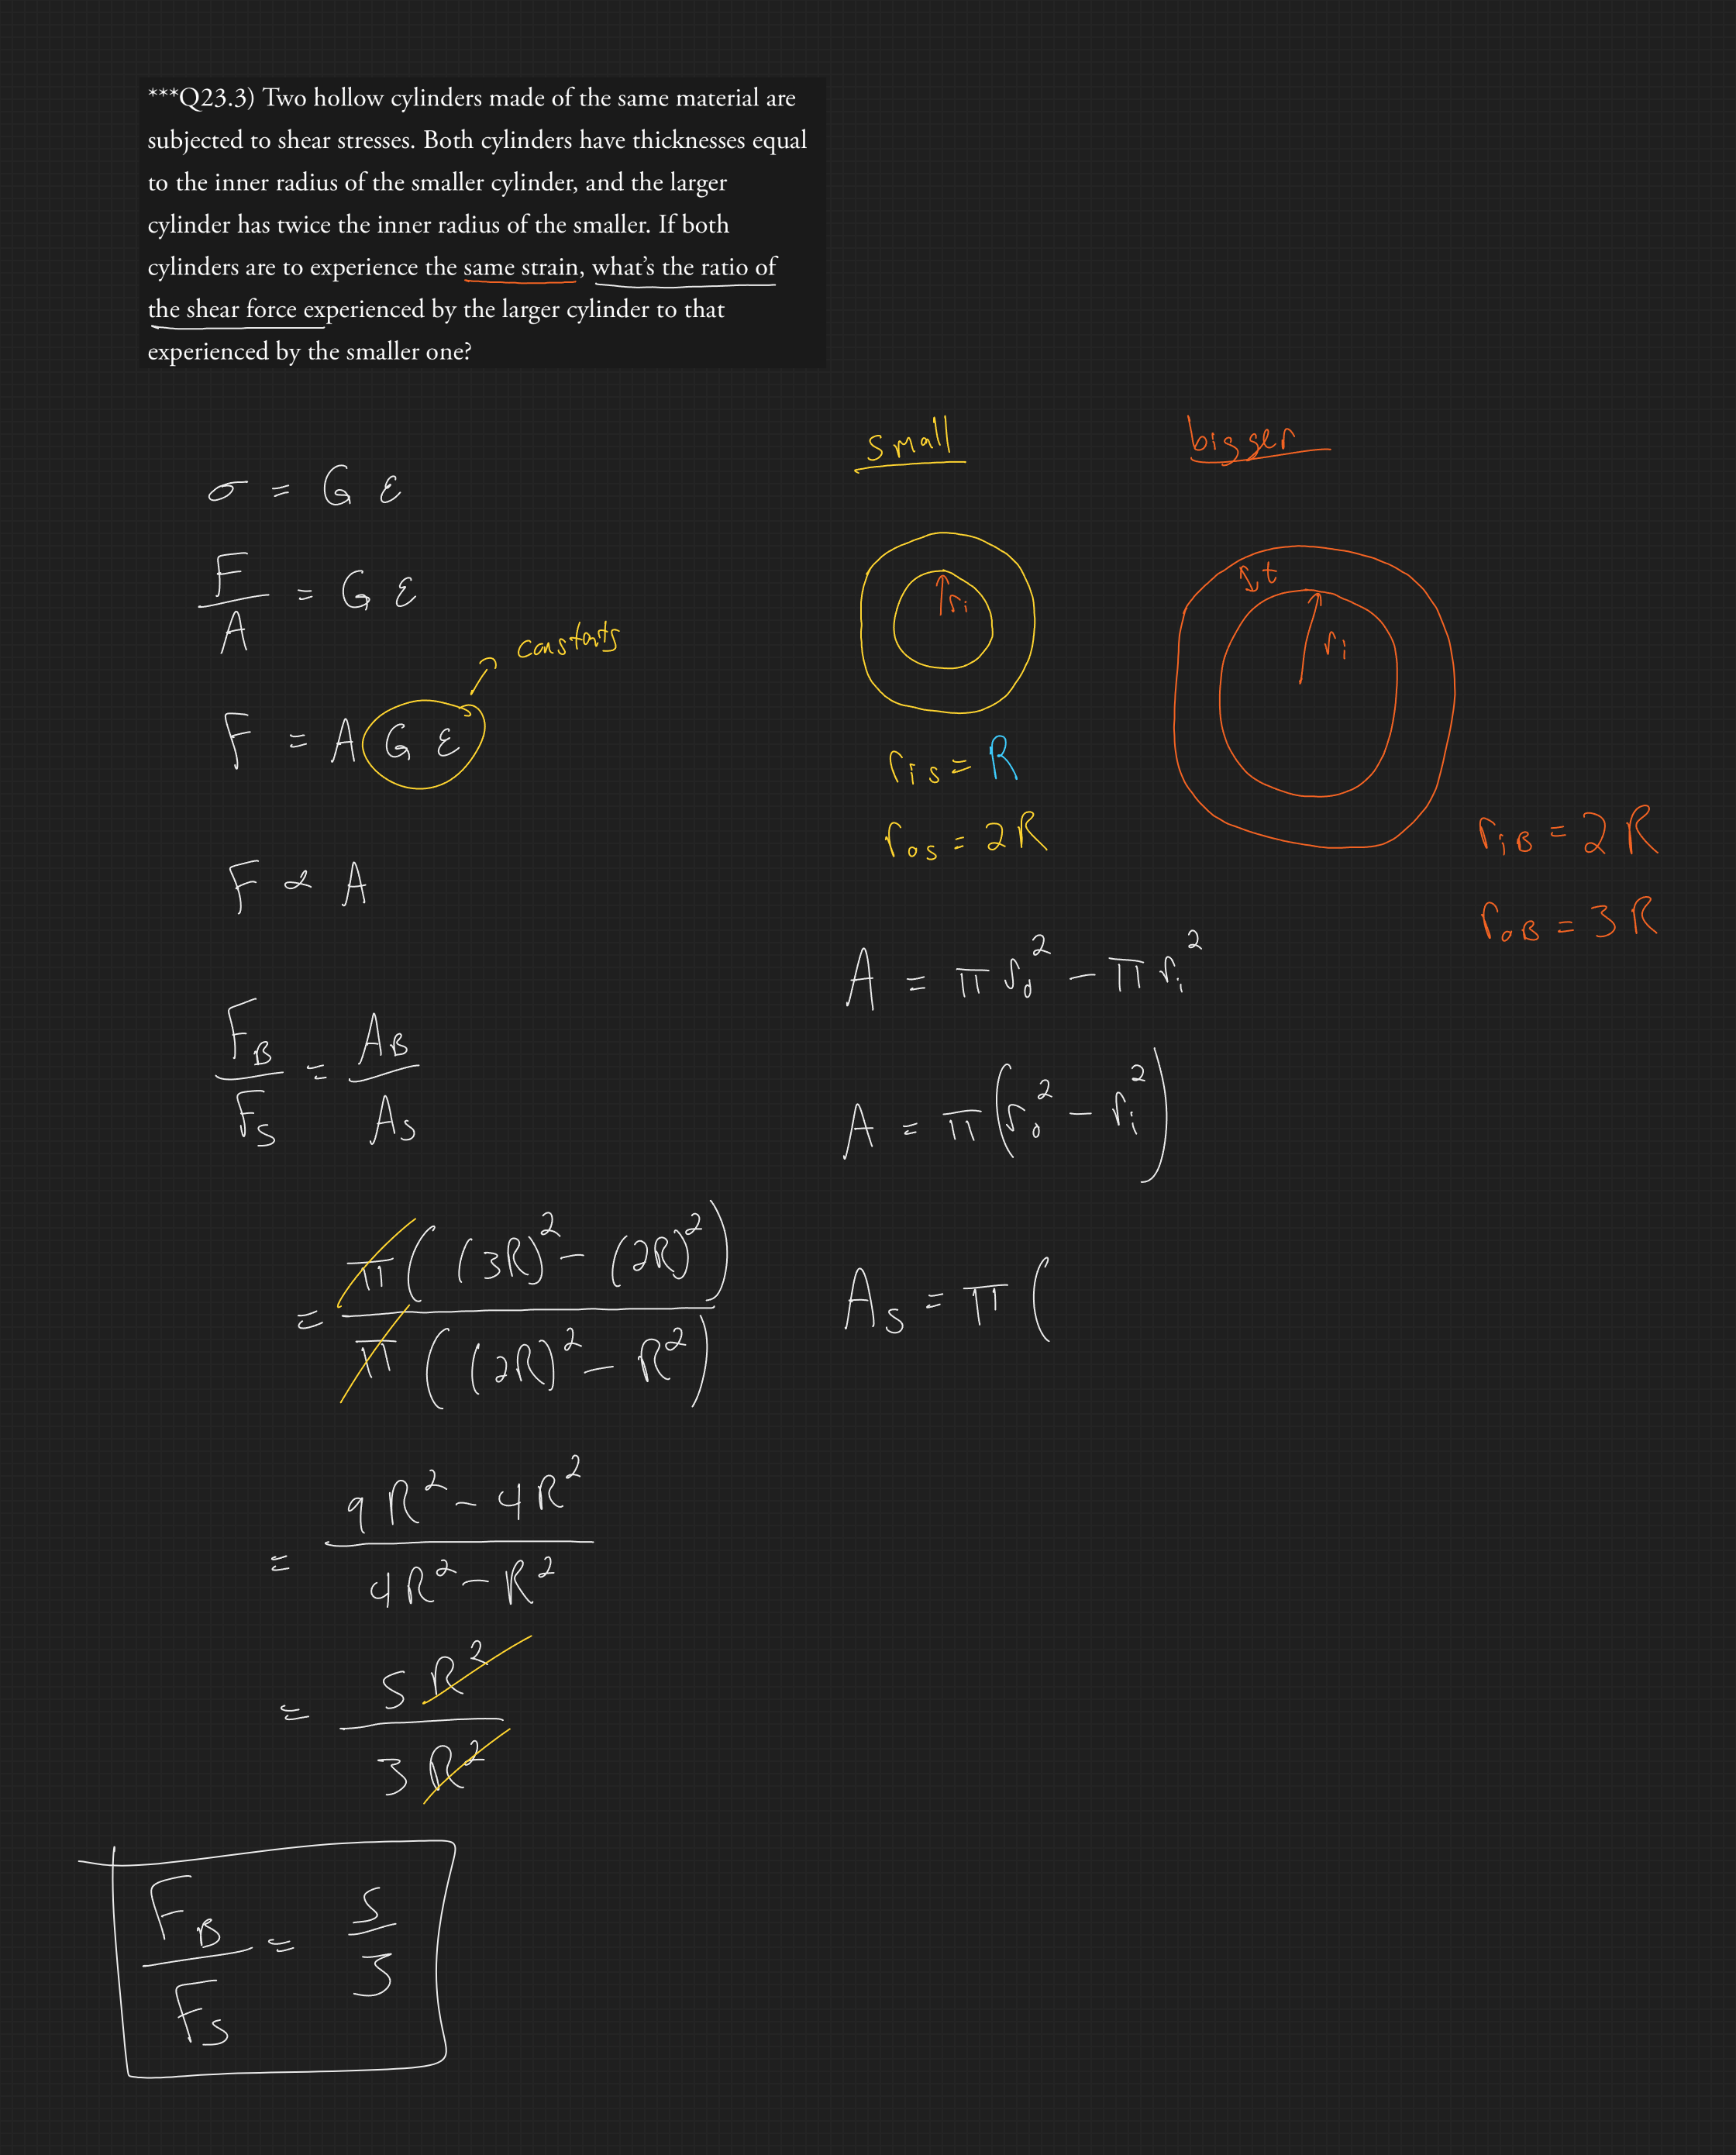 ***Q23.3) Two hollow cylinders made of the same material are
subjected to shear stresses. Both cylinders have thicknesses equal
to the inner radius of the smaller cylinder, and the larger
cylinder has twice the inner radius of the smaller. If both
cylinders are to experience the same strain, what's the ratio of
the shear force experienced by the larger cylinder to that
experienced by the smaller one?
σ = G ε
F/A = G ε
F = A G ε
constants
F ∝ A
F_B/F_S = A_B/A_S
= π((3R)² − (2R)²) / π((2R)² − R²)
= (9R² − 4R²) / (4R² − R²)
= 5R² / 3R²
F_B/F_S = 5/3
small
r_i
r_is = R
r_os = 2R
bigger
t
r_i
r_iB = 2R
r_oB = 3R
A = π r_o² − π r_i²
A = π(r_o² − r_i²)
A_S = π (